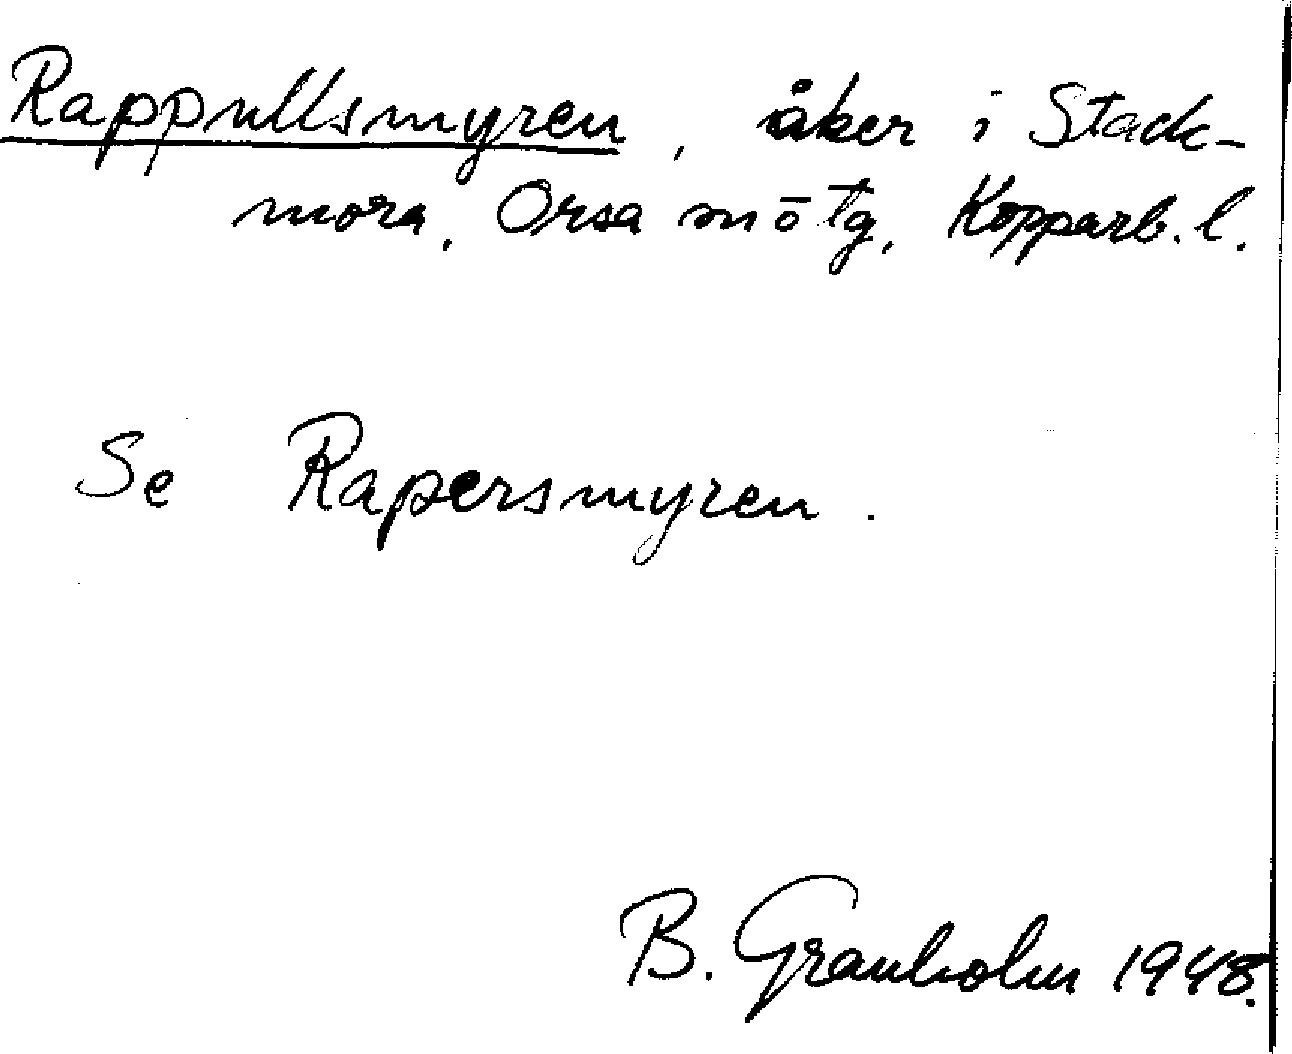 Rappullsmyren, åker i Stack-
mora, Orsa sn ō tg, Kopparb. l.
Se Rapersmyren.
B. Granholm 1948.